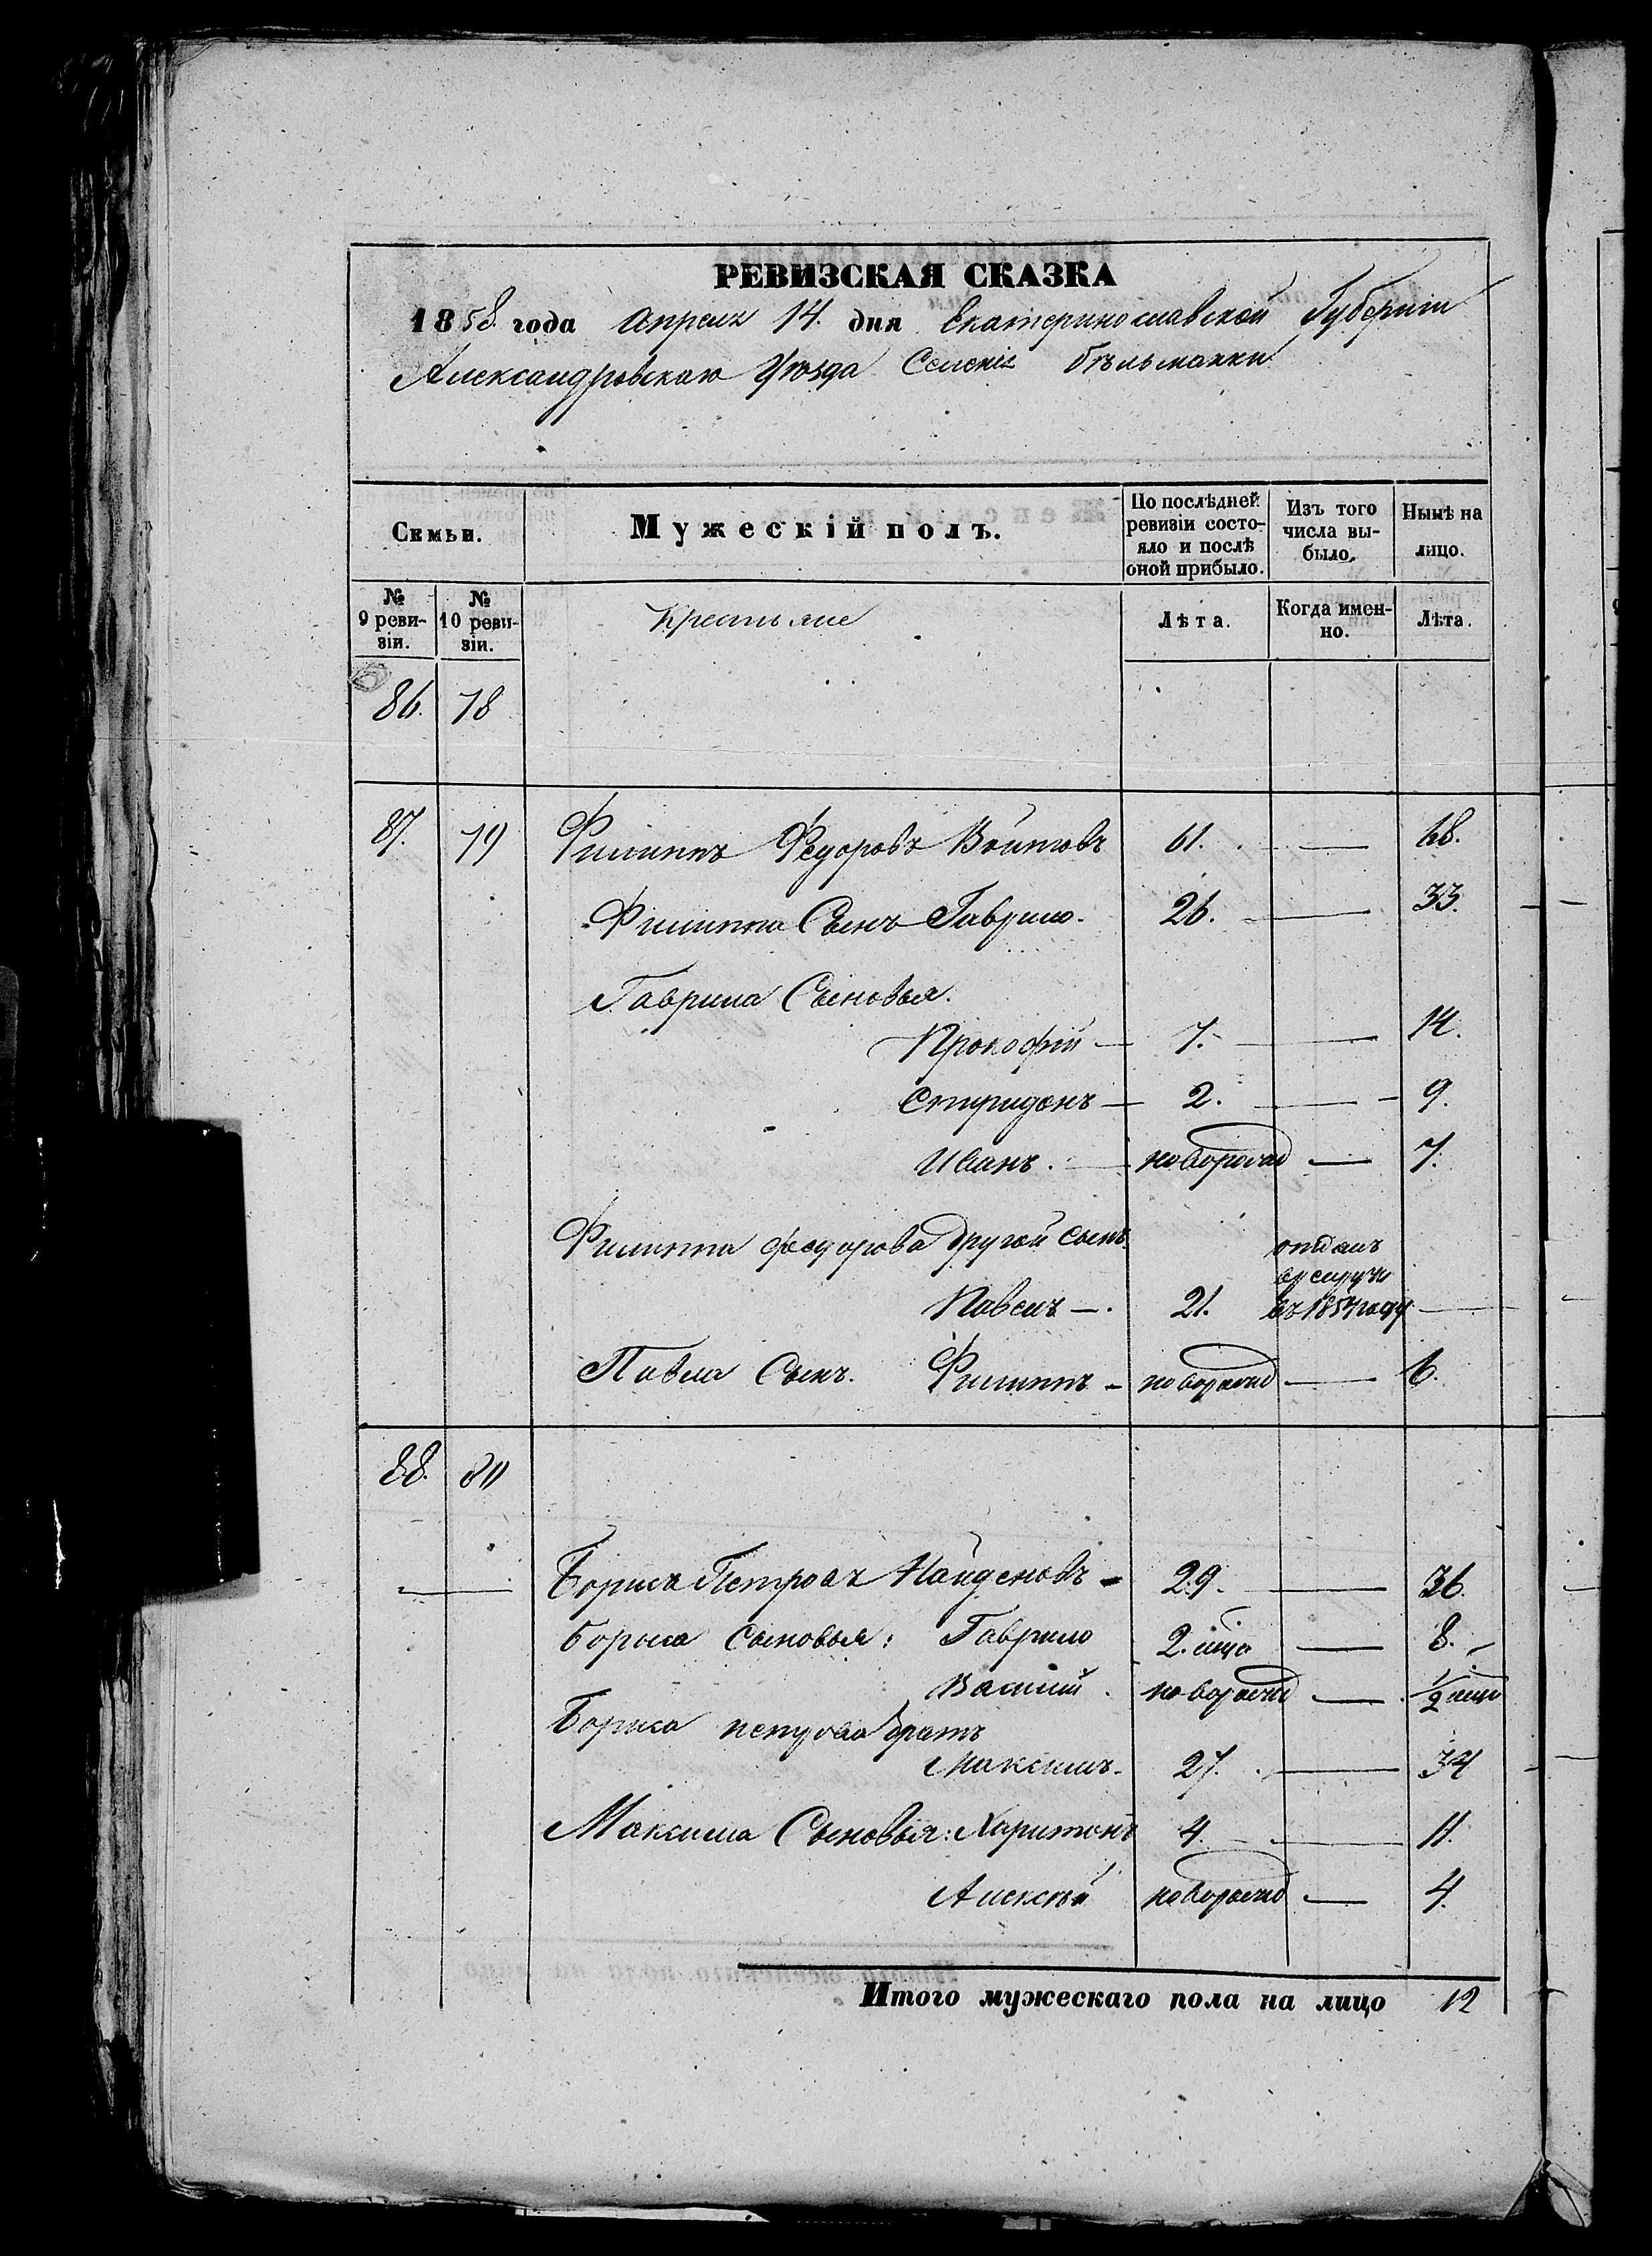 РЕВИЗСКАЯ СКАЗКА
1858. года Апреля 14. дня Екатеринославской Губерніи
Александровскаго Уѣзда Селенія Бѣльманки
Семьи. Мужескій полъ. По послѣдней ревизіи состояло и послѣ оной прибыло. Изъ того числа выбыло. Нынѣ на лицо.
№ 9 ревизіи. № 10 ревизіи. Крестьяне Лѣта. Когда именно. Лѣта.
86. 78
87. 79 Филиппъ Федоровъ Войтовъ 61. — 68.
Филиппа Сынъ Гаврило. 26. — 33.
Гаврила Сыновья.
Прокофій — 7. — 14.
Спиридонъ — 2. — 9.
Иванъ. — новорожд — 7.
Филиппа Федорова другой сынъ
отданъ
Павелъ —. 21. въ 1854 году —
Павла Сынъ. Филиппъ — новорожд — 6.
88. 80
— Бориса Петрова Найденовъ — 29. — 36.
Бориса сыновья: Гаврило 2. — 8.
Василий. новорожд — 1/2
Бориса петрова братъ
Максимъ. 27. — 34
Максима Сыновья: Харитонъ 4. — 11.
Алексѣй новорожд — 4.
Итого мужескаго пола на лицо 12